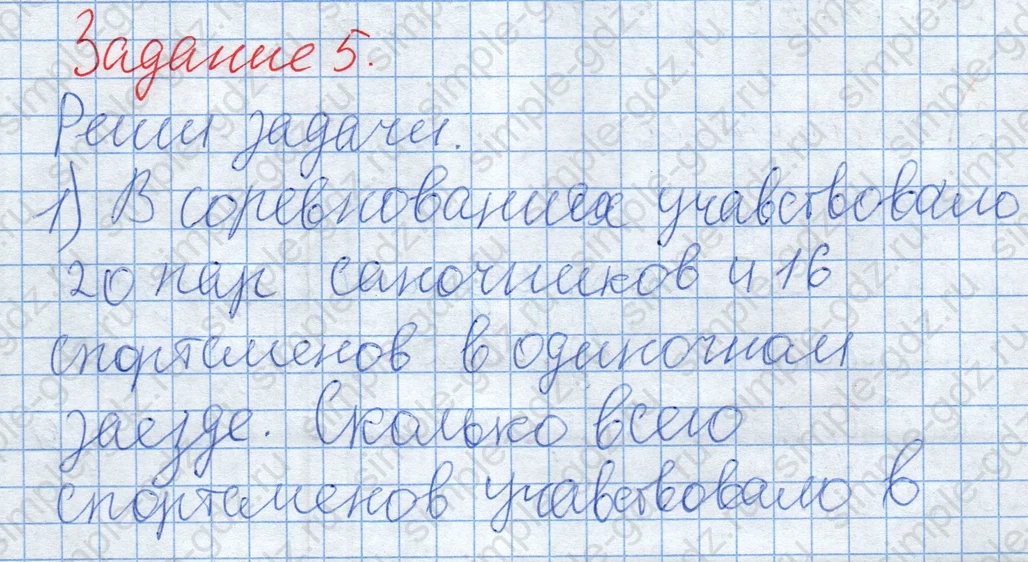 Задание 5.
Реши задачи.
1) В соревнованиях учавствовало
20 пар саночников и 16
спортсменов в одиночном
заезде. Сколько всего
спортсменов учавствовало в